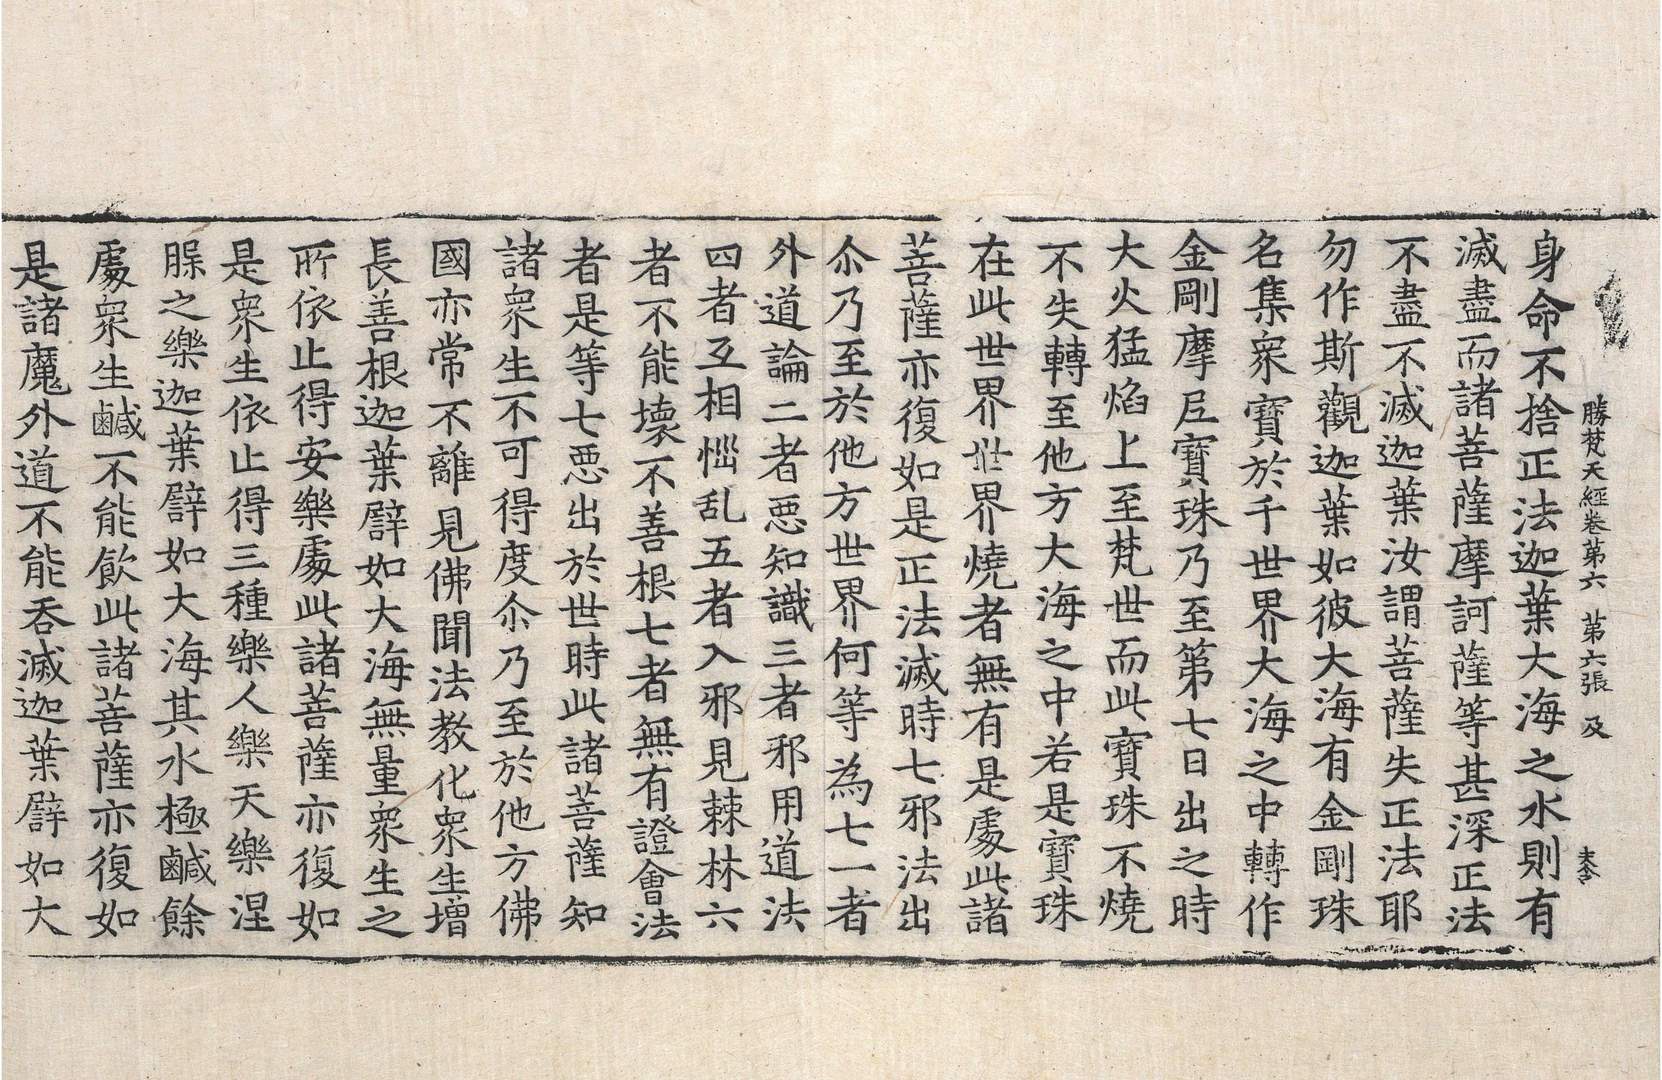 勝梵天經卷第六　第六張　及
身命不捨正法迦葉大海之水則有
滅盡而諸菩薩摩訶薩等甚深正法
不盡不滅迦葉汝謂菩薩失正法耶
勿作斯觀迦葉如彼大海有金剛珠
名集衆寶於千世界大海之中轉作
金剛摩尼寶珠乃至第七日出之時
大火猛焰上至梵世而此寶珠不燒
不失轉至他方大海之中若是寶珠
在此世界世界燒者無有是處此諸
菩薩亦復如是正法滅時七邪法出
尒乃至於他方世界何等為七一者
外道論二者惡知識三者邪用道法
四者互相惱乱五者入邪見棘林六
者不能壊不善根七者無有證會法
者是等七惡出於世時此諸菩薩知
諸衆生不可得度尒乃至於他方佛
國亦常不離見佛聞法教化衆生増
長善根迦葉譬如大海無量衆生之
所依止得安樂處此諸菩薩亦復如
是衆生依止得三種樂人樂天樂涅
槃之樂迦葉譬如大海其水極鹹餘
處衆生鹹不能飲此諸菩薩亦復如
是諸魔外道不能吞滅迦葉譬如大